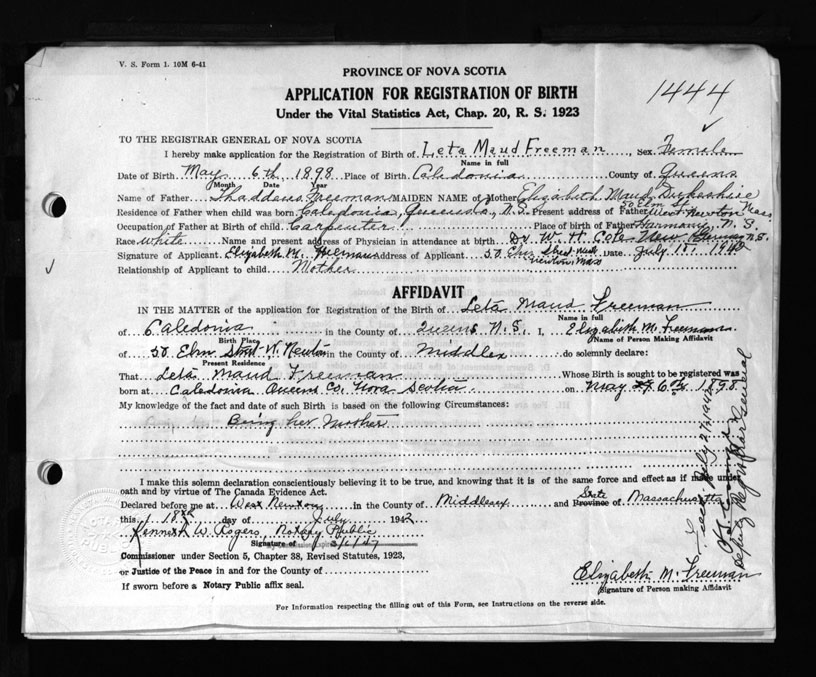 V. S. Form 1. 10M 6-41
PROVINCE OF NOVA SCOTIA
APPLICATION FOR REGISTRATION OF BIRTH
1444
Under the Vital Statistics Act, Chap. 20, R. S. 1923
TO THE REGISTRAR GENERAL OF NOVA SCOTIA
I hereby make application for the Registration of Birth of Leta Maud Freeman, Sex Female
Name in full
Date of Birth May 6th 1898 Place of Birth Caledonia County of Queens
Month Date Year
Name of Father Thaddeus Freeman MAIDEN NAME of Mother Elizabeth Maud
50 Elm St
Residence of Father when child was born Caledonia, Queens Co, N.S. Present address of Father West Newton Mass
Occupation of Father at Birth of child Carpenter Place of Birth of Father Harmony N.S.
Race White Name and present address of Physician in attendance at birth Dr W. H. Cole New N.S.
Signature of Applicant Elizabeth M. Freeman Address of Applicant 50 Elm Street West Newton, Mass Date July 1942
Relationship of Applicant to child Mother
AFFIDAVIT
IN THE MATTER of the application for Registration of the Birth of Leta Maud Freeman
Name in full
of Caledonia in the County of Queens N.S. I, Elizabeth M. Freeman
Birth Place Name of Person Making Affidavit
of 50 Elm Street W. Newton in the County of Middlex do solemnly declare:
Present Residence
That Leta Maud Freeman Whose Birth is sought to be registered was
born at Caledonia Queens Co. Nova Scotia on May 6th 1898
My knowledge of the fact and date of such Birth is based on the following Circumstances:
Being her Mother
I make this solemn declaration conscientiously believing it to be true, and knowing that it is of the same force and effect as if made under
oath and by virtue of The Canada Evidence Act.
State
Declared before me at West Newton in the County of Middlesex and Province of Massachusetts
this 18th day of July 1942
Kenneth W. Rogers, Notary Public
Signature of
Commissioner under Section 5, Chapter 38, Revised Statutes, 1923,
or Justice of the Peace in and for the County of
Elizabeth M. Freeman
If sworn before a Notary Public affix seal.
Signature of Person making Affidavit
For Information respecting the filling out of this Form, see Instructions on the reverse side.
July 27, 1942
Deputy Registrar General